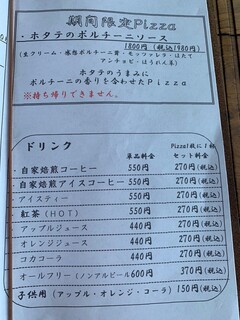 期間限定Pizza
・ホタテのポルチーニソース
1800円(税込1980円)
(生クリーム・感想ポルチーニ茸・モッツァレラ・ほたて
アンチョビ・ほうれん草)
ホタテのうまみに
ポルチーニの香りを合わせたPizza
※持ち帰りできません。
ドリンク
Pizza1枚に1杯
単品料金 セット料金
・自家焙煎コーヒー 550円 270円(税込)
・自家焙煎アイスコーヒー 550円 270円(税込)
・アイスティー 550円 270円(税込)
・紅茶(HOT) 550円 270円(税込)
・アップルジュース 440円 270円(税込)
・オレンジジュース 440円 270円(税込)
・コカコーラ 440円 270円(税込)
・オールフリー(ノンアルビール 600円 370円(税込)
子供用(アップル・オレンジ・コーラ) 150円(税込)